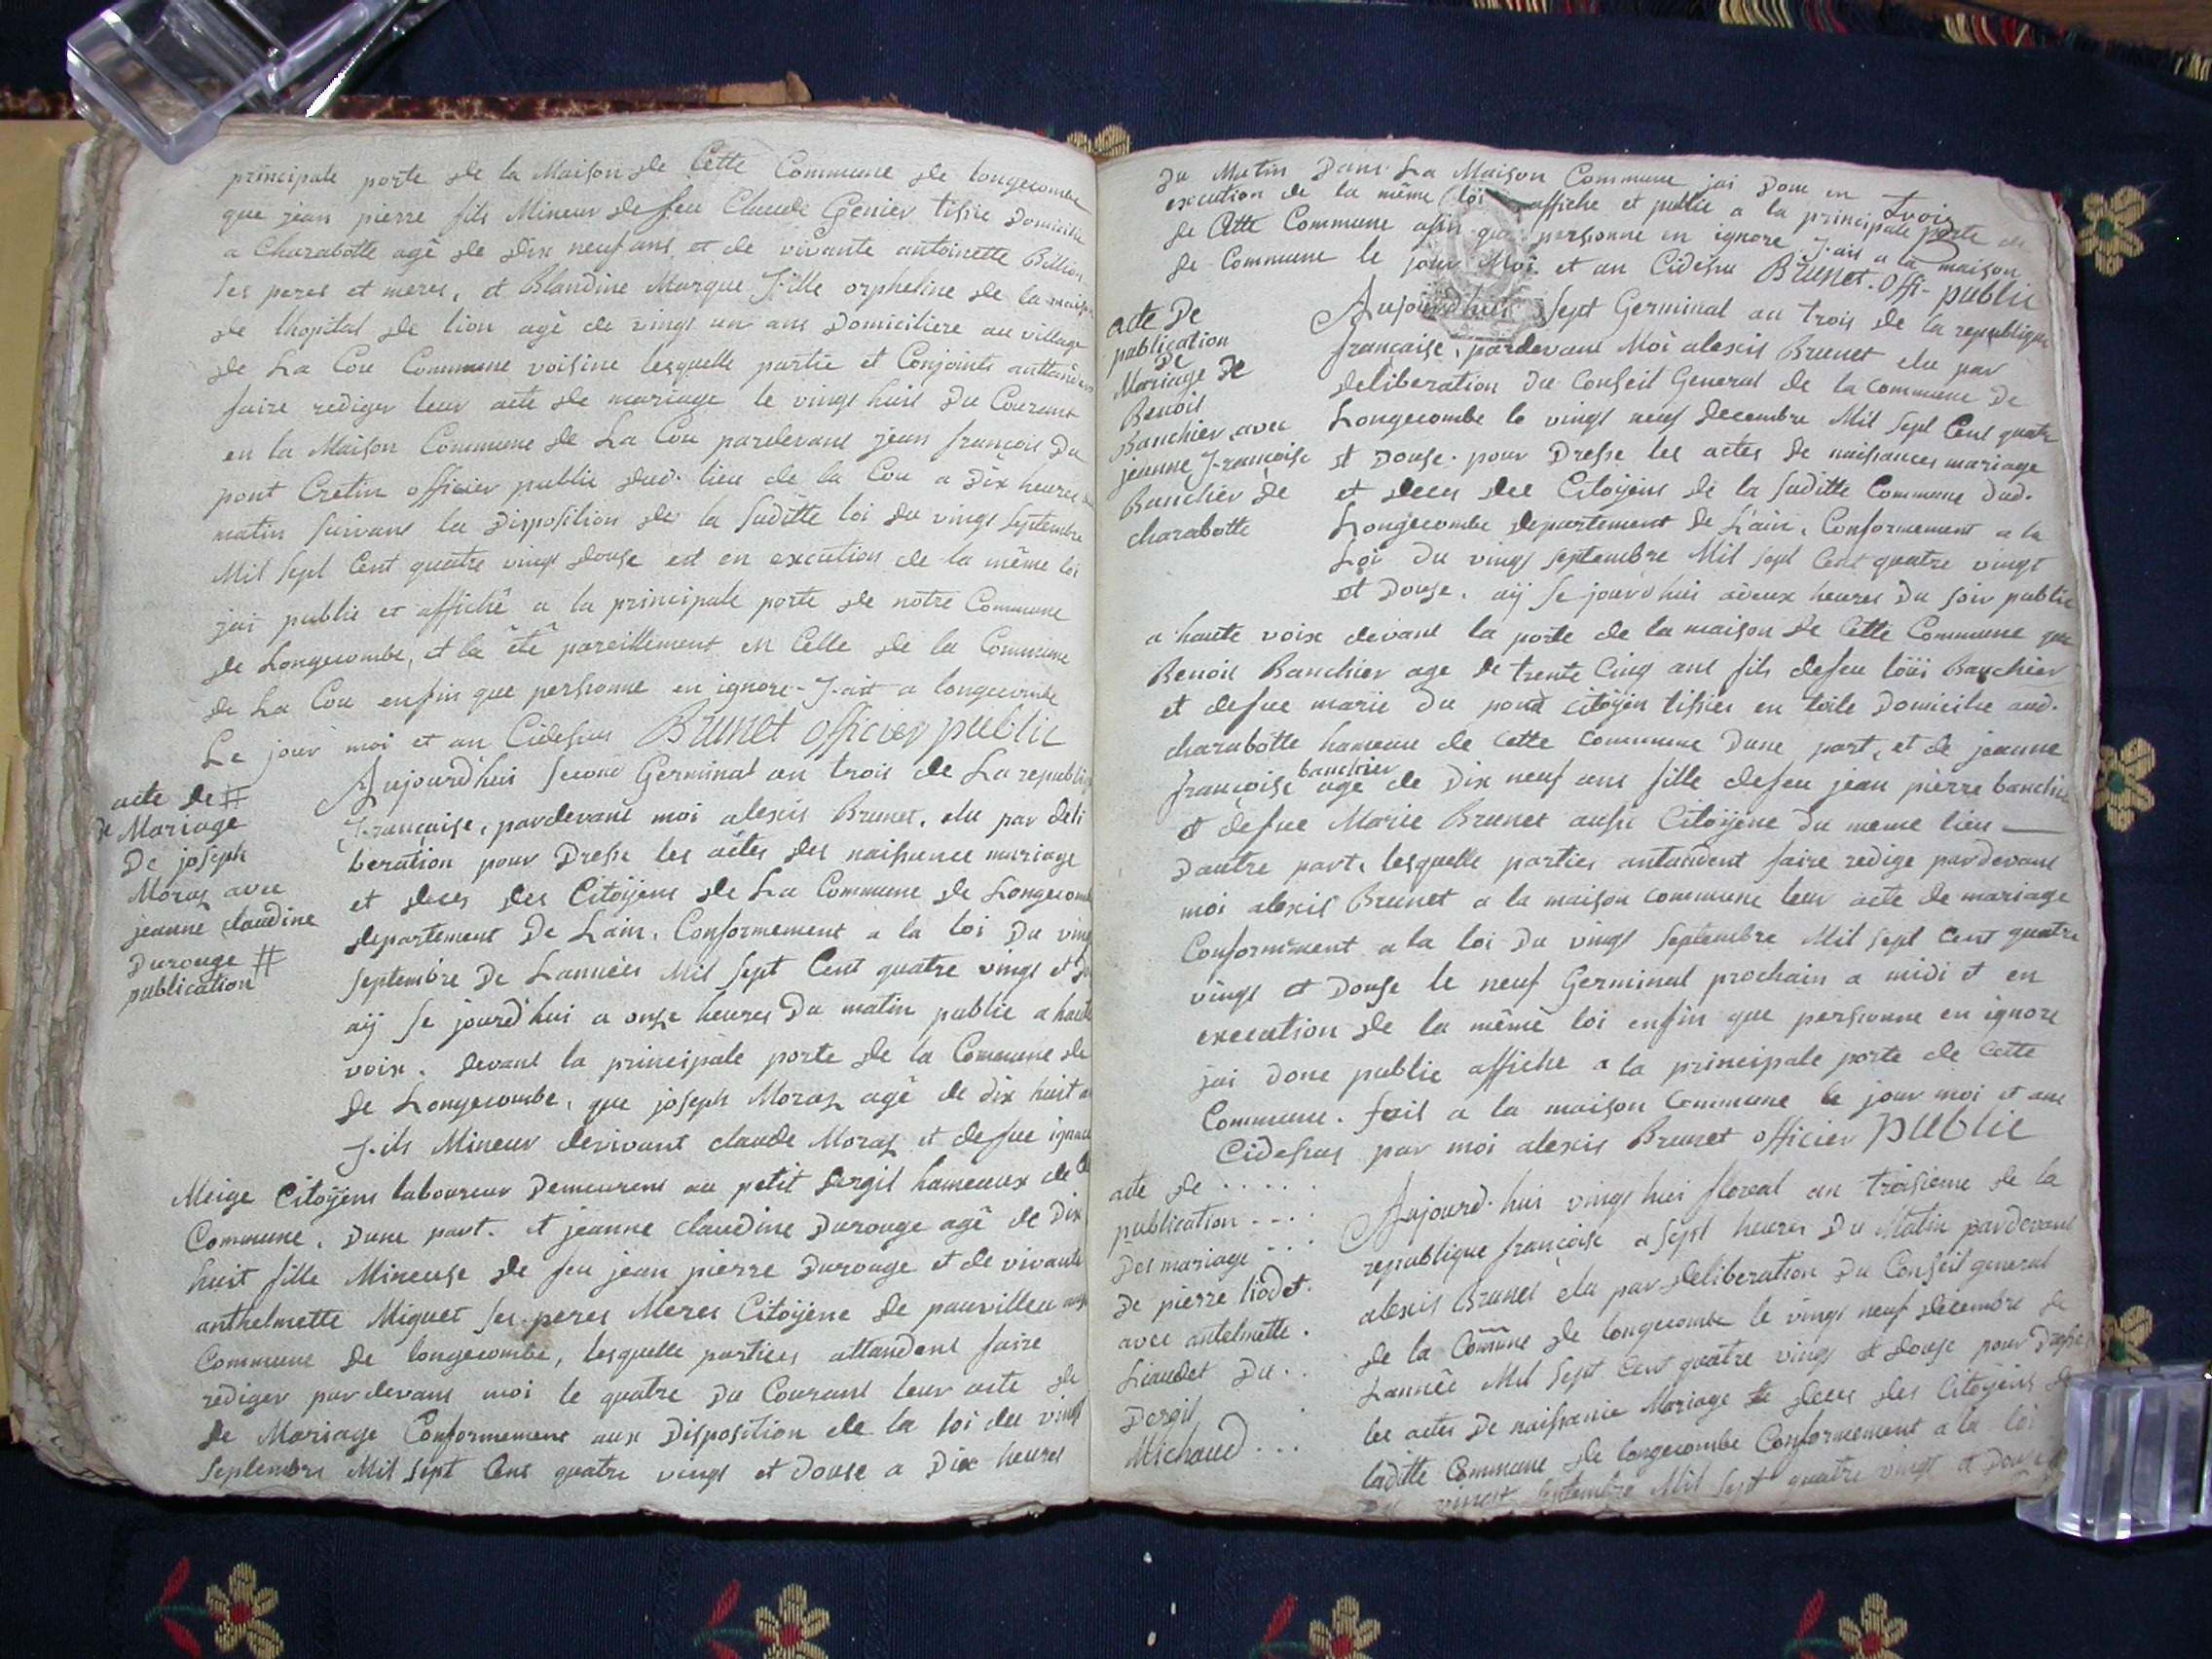 principale porte de la Maison de Cette Commune de longecombe
que jean pierre fils Mineur de feu Claude Genier tissie Domicilie
a Charabotte agê de dix neuf ans et de vivante antoinette Billion
ses peres et meres, et Blandine Marque fille orpheline de la
de lhopital de lion agê de vingt un ans Domiciliere au village
de La Cou Commune voisine lesquelle partie et Conjoints
faire rediger leur acte de mariage le vingt huit du Courant
en la Maison Commune de La Cou pardevant jean françois Du
pont Cretin officier public dud. lieu de la Cou a Dix heures
matin suivant la Disposition de la suditte loi du vingt septembre
Mil sept Cent quatre vingt douse est en execution de la même loi
jai public et affichê a la principale porte de notre Commune
de Longecombe, et la êtê pareillement en Celle de la Commune
de La Cou enfin que personne en ignore. fait a longecombe
Le jour moi et an Cidessus Brunet officier public
acte de #
de Mariage
De joseph
Moraz avec
jeanne claudine
Durouge #
publication
Aujourd'hui second Germinal an trois de La republi
française, pardevant moi alexis Brunet, elu par deli
beration pour Dresse les actes des naissance mariage
et deces des Citoÿens de La Commune de Longecombe
departement De Lain. Conformement a la loi Du vingt
septembre De Lannéés Mil sept Cent quatre vingt et
aÿ se jourd'hui a onze heures Du matin public a haute
voix. devant la principale porte de la Commune de
de Longecombe, que joseph Moraz agê de dix huit
fils Mineur devivant claude Moraz et defue
Meige Citoÿens laboureur Demeurens au petit Dergil hameaux de
Commune. Dune part. et jeanne claudine Durouge agê de Dix
huit fille Mineuse de feu jean pierre Durouge et de vivante
anthelmette Miguet ses peres Meres Citoÿene de pauvilleu
Commune de longecombe, lesquelle parties attandent faire
rediger pardevant moi le quatre Du Courant leur acte de
de Mariage Conformement aux Disposition de la loi du vingt
septembre Mil sept Cent quatre vingt et Douse a Dix heures
Du Matin Dans La Maison Commune jai Donc en
execution de la même loi affiche et public a la principale porte de
trois
de Cette Commune afin que personne en ignore fait a la maison
de Commune le jour Moi et an Cidesu Brunet. offi- public
acte De
publication
De
Mariage De
Benoit
Banchier, avec
jeanne françoise
Banchier de
charabotte
Aujourd'hui sept Germinal an trois de la republique
française, pardevant Moi alexis Brunet elu par
deliberation Du Conseil General de la Commune De
Longecombe le vingt neuf decembre Mil sept Cent quatre
et Douse. pour Dresse les actes de naissances mariage
et deces des Citoÿens de la suditte Commune dud.
Longecombe departement de L'ain. Conformement a la
Loi Du vingt septembre Mil sept Cent quatre vingt
et Douse. aÿ se jourd'hui adeux heures Du soir public
a haute voix devant la porte de la maison de Cette Commune que
Benoit Banchier age de trente Cinq ans fils defeu loüi Banchier
et defue marie Du pont citoÿen tissier en toile Domicilie aud.
charabôtte hameau de cette commune Dune part, et de jeanne
banchier
françoise age de Dix neuf ans fille defeu jean pierre banchier
et defue Marie Brunet aussi Citoÿene Du meme lieu —
Dautre part. lesquelle parties antandent faire redige pardevant
moi alexis Brunet a la maison commune leur acte de mariage
Conformément a la loi Du vingt septembre Mil sept Cent quatre
vingt et Douse le neuf Germinal prochain a midi et en
execution de la même loi enfin que personne en ignore
jai donc public affiche a la principale porte de cette
Commune. fait a la maison commune le jour moi et an
Cidessus par moi alexis Brunet officier public
acte de . . . . .
publication . . . .
Des mariage . . .
De pierre liodet.
avec antelmette .
Liaudet Du . .
Dergil
Michaud . . .
Aujourd. hui vingt huit floreal an troisieme de la
republique française a sept heures Du Matin pardevant
alexis Brunet elu par deliberation Du Conseil general
de la Comune de longecombe le vingt neuf decembre de
Lannéê Mil sept Cent quatre vingt et douse pour Dresse
les actes De naissance Mariage et deces des Citoÿens de
laditte Commune de longecombe Conformement a la loi
Du vingt septembre Mil sept quatre vingt et Douse